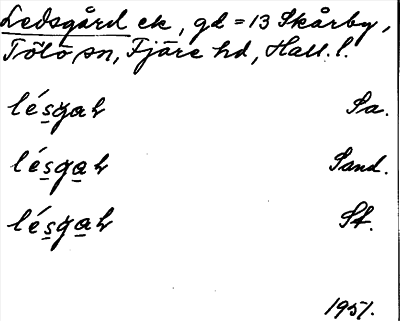 Ledsgård ek, gd = 13 Skårby,
Tölö sn, Fjäre hd, Hall. l.
lésgaʜ Sa.
lésgaʜ Sand.
lésgaʜ St.
1951.